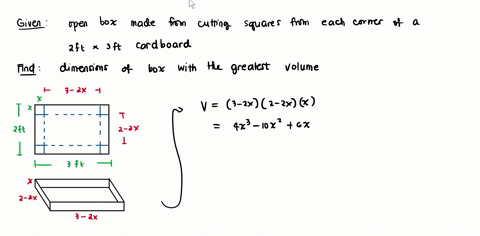 Given: open box made from cutting squares from each corner of a
2ft x 3ft cardboard
Find: dimensions of box with the greatest volume
x
3-2x
x
2ft
2-2x
3 ft
x
2-2x
3-2x
V = (3-2x)(2-2x)(x)
= 4x³-10x²+6x